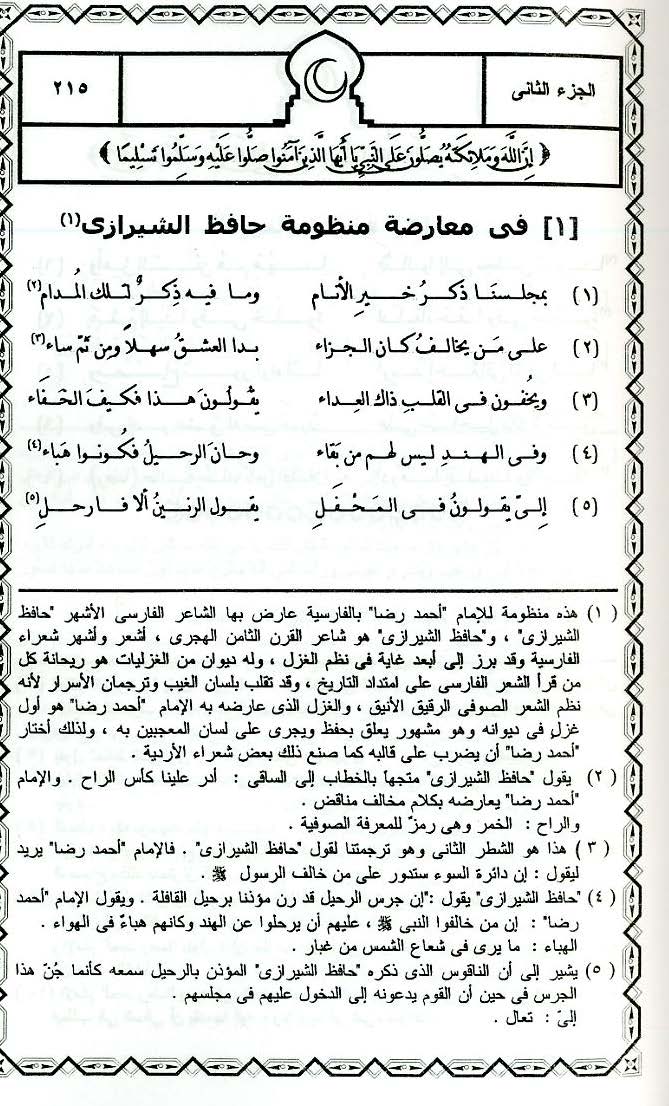 الجزء الثانى
٢١٥
﴿ إِنَّ اللَّهَ وَمَلَائِكَتَهُ يُصَلُّونَ عَلَى النَّبِيِّ يَا أَيُّهَا الَّذِينَ آمَنُوا صَلُّوا عَلَيْهِ وَسَلِّمُوا تَسْلِيمًا ﴾
[١] فى معارضة منظومة حافظ الشيرازى(١)
(١) بمجلسنَا ذَكرُ خيرِ الأنام وما فيه ذِكرٌ لتلك المُدام(٢)
(٢) على مَن يخالفُ كان الجزاء بدا العشقُ سهلاً ومن ثَمّ ساء(٣)
(٣) ويُخفون فى القلبِ ذاك العِداء يقُولُونَ هذا فكيفَ الخفَاء
(٤) وفى الهندِ ليس لهم من بقَاء وحانَ الرحيلُ فكُونوا هَباء(٤)
(٥) إلىّ يقولونُ فى المَحْفلِ يقول الرنينُ ألا فارحلِ(٥)
(١) هذه منظومة للإمام "أحمد رضا" بالفارسية عارض بها الشاعر الفارسى الأشهر "حافظ
الشيرازى" ، و"حافظ الشيرازى" هو شاعر القرن الثامن الهجرى ، أشعر وأشهر شعراء
الفارسية وقد برز إلى أبعد غاية فى نظم الغزل ، وله ديوان من الغزليات هو ريحانة كل
من قرأ الشعر الفارسى على امتداد التاريخ ، وقد تقلب بلسان الغيب وترجمان الأسرار لأنه
نظم الشعر الصوفى الرقيق الأنيق ، والغزل الذى عارضه به الإمام "أحمد رضا" هو أول
غزل فى ديوانه وهو مشهور يعلق بحفظ ويجرى على لسان المعجبين به ، ولذلك أختار
"أحمد رضا" أن يضرب على قالبه كما صنع ذلك بعض شعراء الأردية .
(٢) يقول "حافظ الشيرازى" متجهاً بالخطاب إلى الساقى : أدر علينا كأس الراح . والإمام
"أحمد رضا" يعارضه بكلام مخالف مناقض .
والراح : الخمر وهى رمزّ للمعرفة الصوفية .
(٣) هذا هو الشطر الثانى وهو ترجمتنا لقول "حافظ الشيرازى" . فالإمام "أحمد رضا" يريد
ليقول : إن دائرة السوء ستدور على من خالف الرسول ﷺ .
(٤) "حافظ الشيرازى" يقول :"إن جرس الرحيل قد رن مؤذنا برحيل القافلة . ويقول الإمام "أحمد
رضا": إن من خالفوا النبى ﷺ ، عليهم أن يرحلوا عن الهند وكانهم هباءً فى الهواء .
الهباء : ما يرى فى شعاع الشمس من غبار .
(٥) يشير إلى أن الناقوس الذى ذكره "حافظ الشيرازى" المؤذن بالرحيل سمعه كأنما جُنّ هذا
الجرس فى حين أن القوم يدعونه إلى الدخول عليهم فى مجلسهم .
إلىّ : تعال .